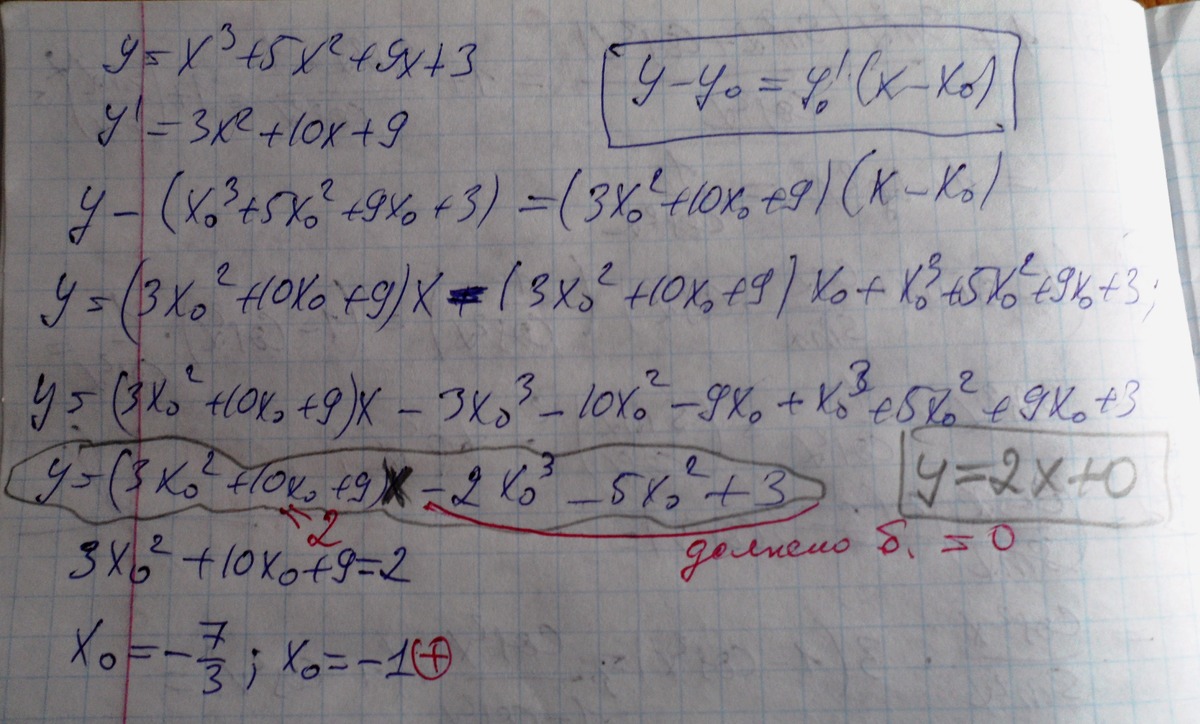 y = x³ + 5x² + 9x + 3
y - y₀ = y₀' (x - x₀)
y' = 3x² + 10x + 9
y - (x₀³ + 5x₀² + 9x₀ + 3) = (3x₀² + 10x₀ + 9) (x - x₀)
y = (3x₀² + 10x₀ + 9)x - (3x₀² + 10x₀ + 9) x₀ + x₀³ + 5x₀² + 9x₀ + 3;
y = (3x₀² + 10x₀ + 9)x - 3x₀³ - 10x₀² - 9x₀ + x₀³ + 5x₀² + 9x₀ + 3
y = (3x₀² + 10x₀ + 9)x - 2x₀³ - 5x₀² + 3
y = 2x + 0
2
должно б. = 0
3x₀² + 10x₀ + 9 = 2
x₀ = -7/3; x₀ = -1 ⊕